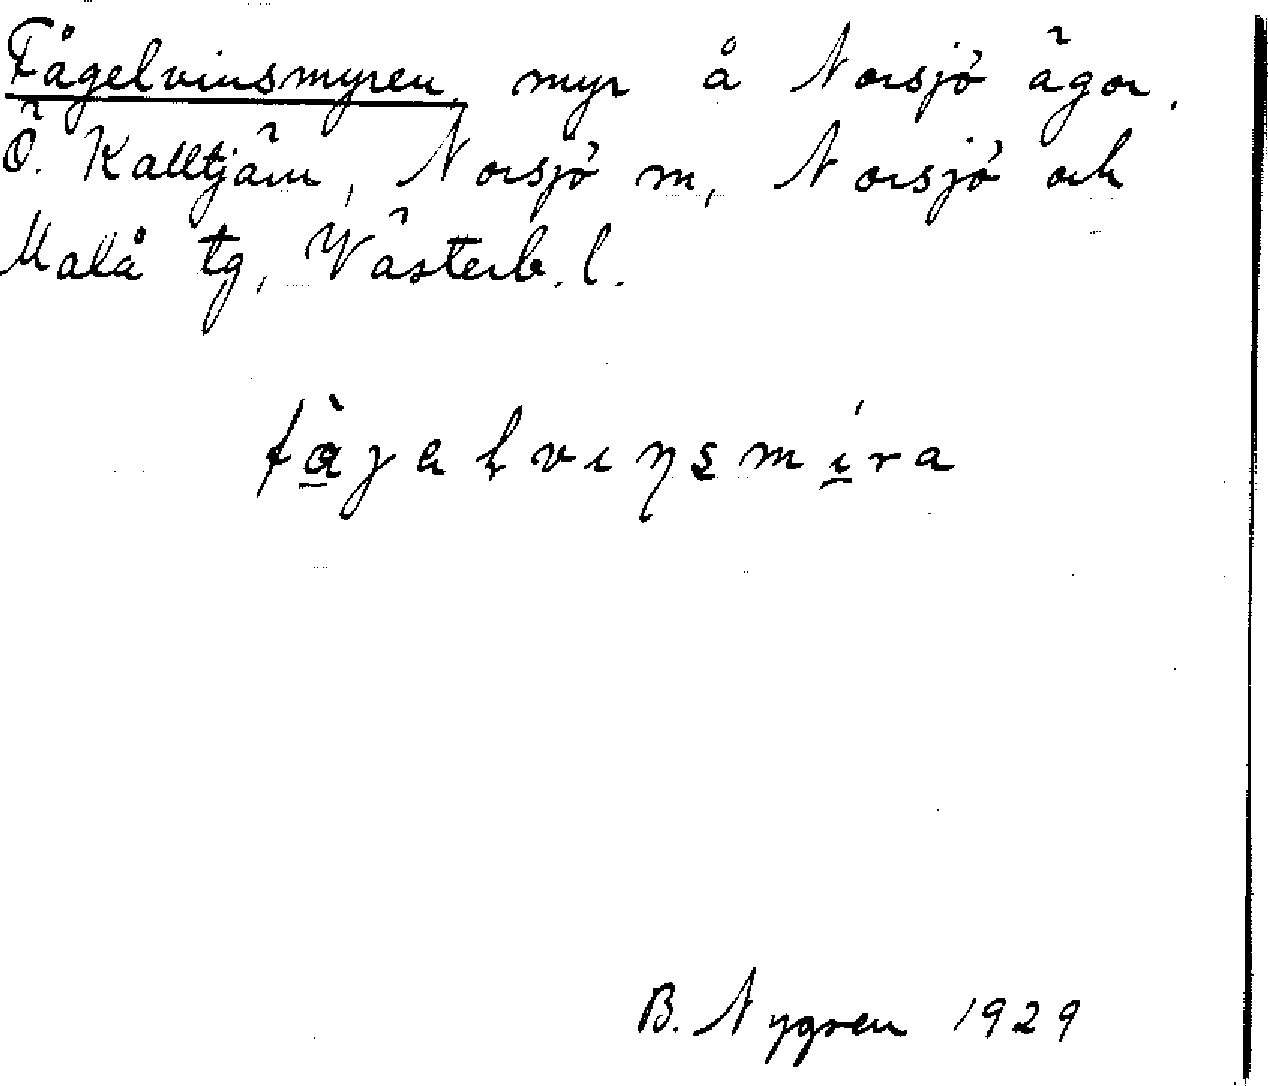 Fågelvinsmyren, myr å Norsjö ägor,
Ö. Kalltjärn, Norsjö sn, Norsjö och
Malå tg, Västerb. l.
fàgalviŋsmira
B. Nygren 1929